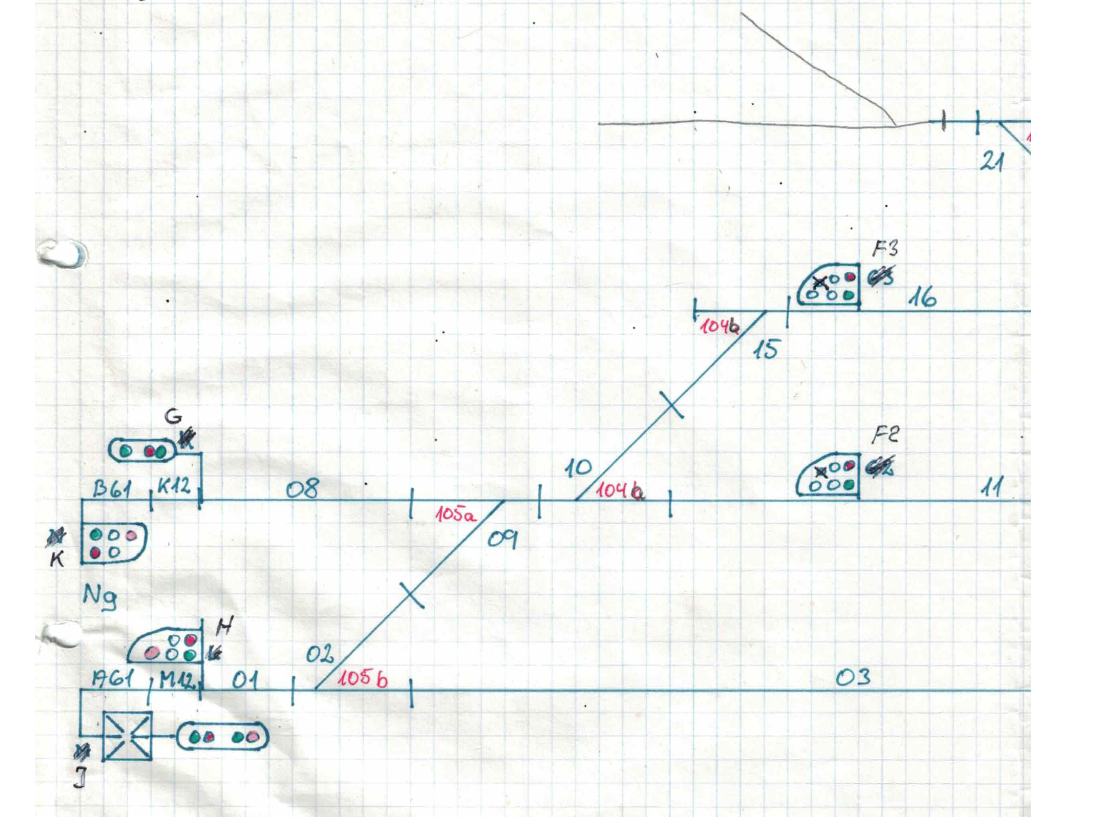 21
F3
16
104b
15
F2
G
10
B61 K12 08 104b 11
105a
09
K
Ng
H
02
A61 M12 01 105b 03
J